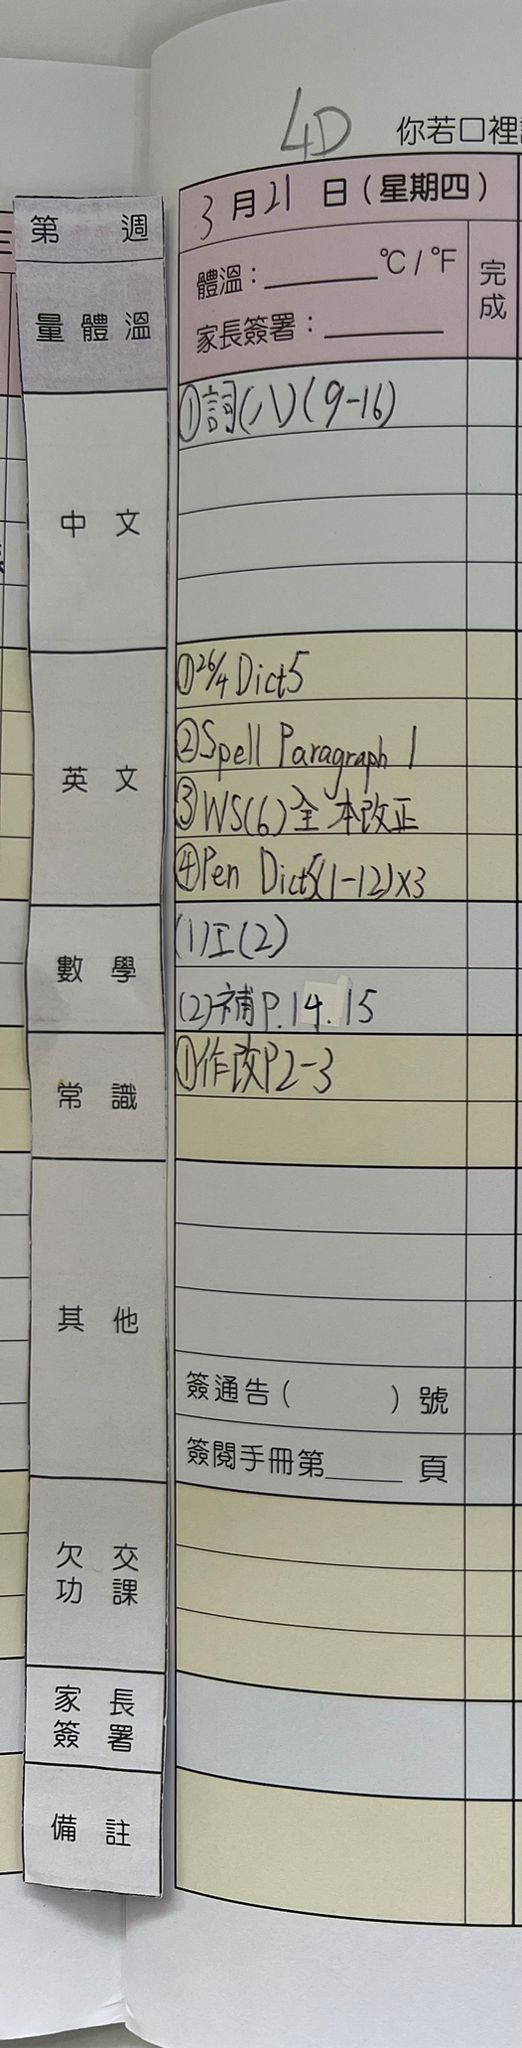 4D
你若口裡
3月21日(星期四)
第 週
體溫：______℃/℉
完成
量體溫
家長簽署：______
中文
①詞(八)(9-16)
英文
①26/4 Dict5
②Spell Paragraph 1
③WS(6)全本改正
④Pen Dict5(1-12)x3
數學
(1)工(2)
(2)補P.14.15
常識
①作改P2-3
其他
簽通告( )號
簽閱手冊第______頁
欠交
功課
家長
簽署
備註